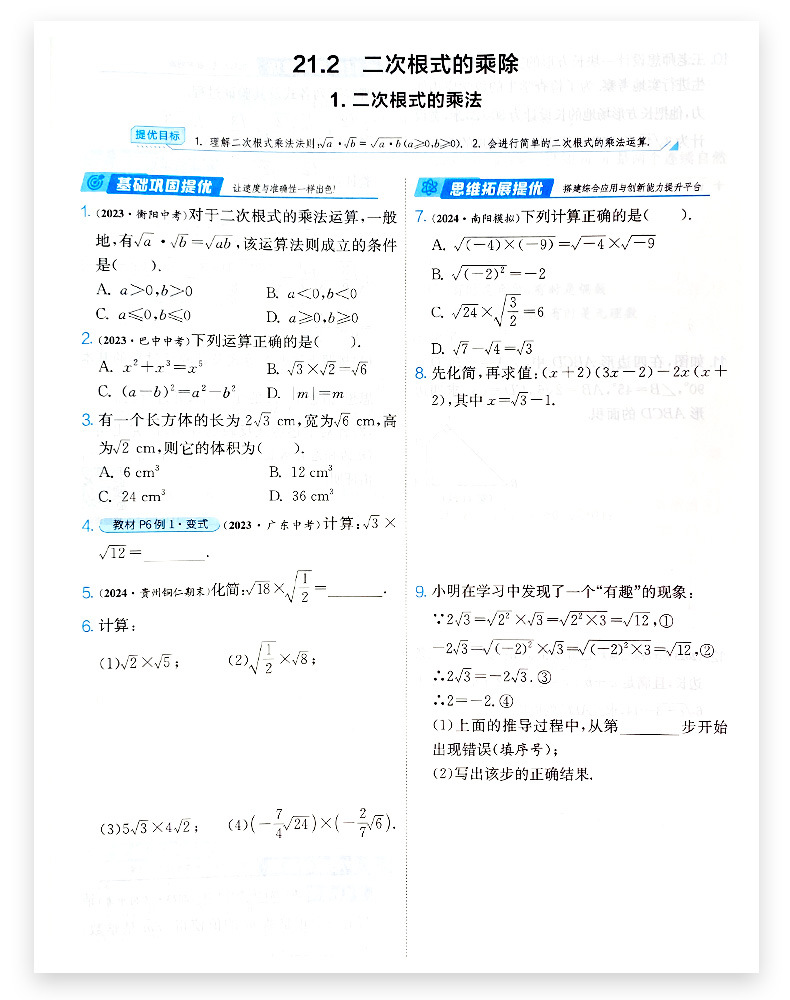 21.2 二次根式的乘除
1. 二次根式的乘法
提优目标 1. 理解二次根式乘法法则,√a·√b=√(a·b)(a≥0,b≥0). 2. 会进行简单的二次根式的乘法运算.
基础巩固提优 让速度与准确性一样出色!
1. (2023·衡阳中考)对于二次根式的乘法运算,一般
地,有√a·√b=√(ab),该运算法则成立的条件
是( ).
A. a>0,b>0 B. a<0,b<0
C. a≤0,b≤0 D. a≥0,b≥0
2. (2023·巴中中考)下列运算正确的是( ).
A. x²+x³=x⁵ B. √3×√2=√6
C. (a-b)²=a²-b² D. |m|=m
3. 有一个长方体的长为 2√3 cm,宽为√6 cm,高
为√2 cm,则它的体积为( ).
A. 6 cm³ B. 12 cm³
C. 24 cm³ D. 36 cm³
4. 教材 P6 例 1·变式 (2023·广东中考)计算:√3×
√12=________.
5. (2024·贵州铜仁期末)化简:√18×√(1/2)=________.
6. 计算:
(1)√2×√5; (2)√(1/2)×√8;
(3)5√3×4√2; (4)(-7/4√24)×(-2/7√6).
思维拓展提优 搭建综合应用与创新能力提升平台
7. (2024·南阳模拟)下列计算正确的是( ).
A. √((-4)×(-9))=√-4×√-9
B. √((-2)²)=-2
C. √24×√(3/2)=6
D. √7-√4=√3
8. 先化简,再求值:(x+2)(3x-2)-2x(x+
2),其中 x=√3-1.
9. 小明在学习中发现了一个“有趣”的现象:
∵2√3=√(2²)×√3=√(2²×3)=√12,①
-2√3=√((-2)²)×√3=√((-2)²×3)=√12,②
∴2√3=-2√3.③
∴2=-2.④
(1)上面的推导过程中,从第________步开始
出现错误(填序号);
(2)写出该步的正确结果.